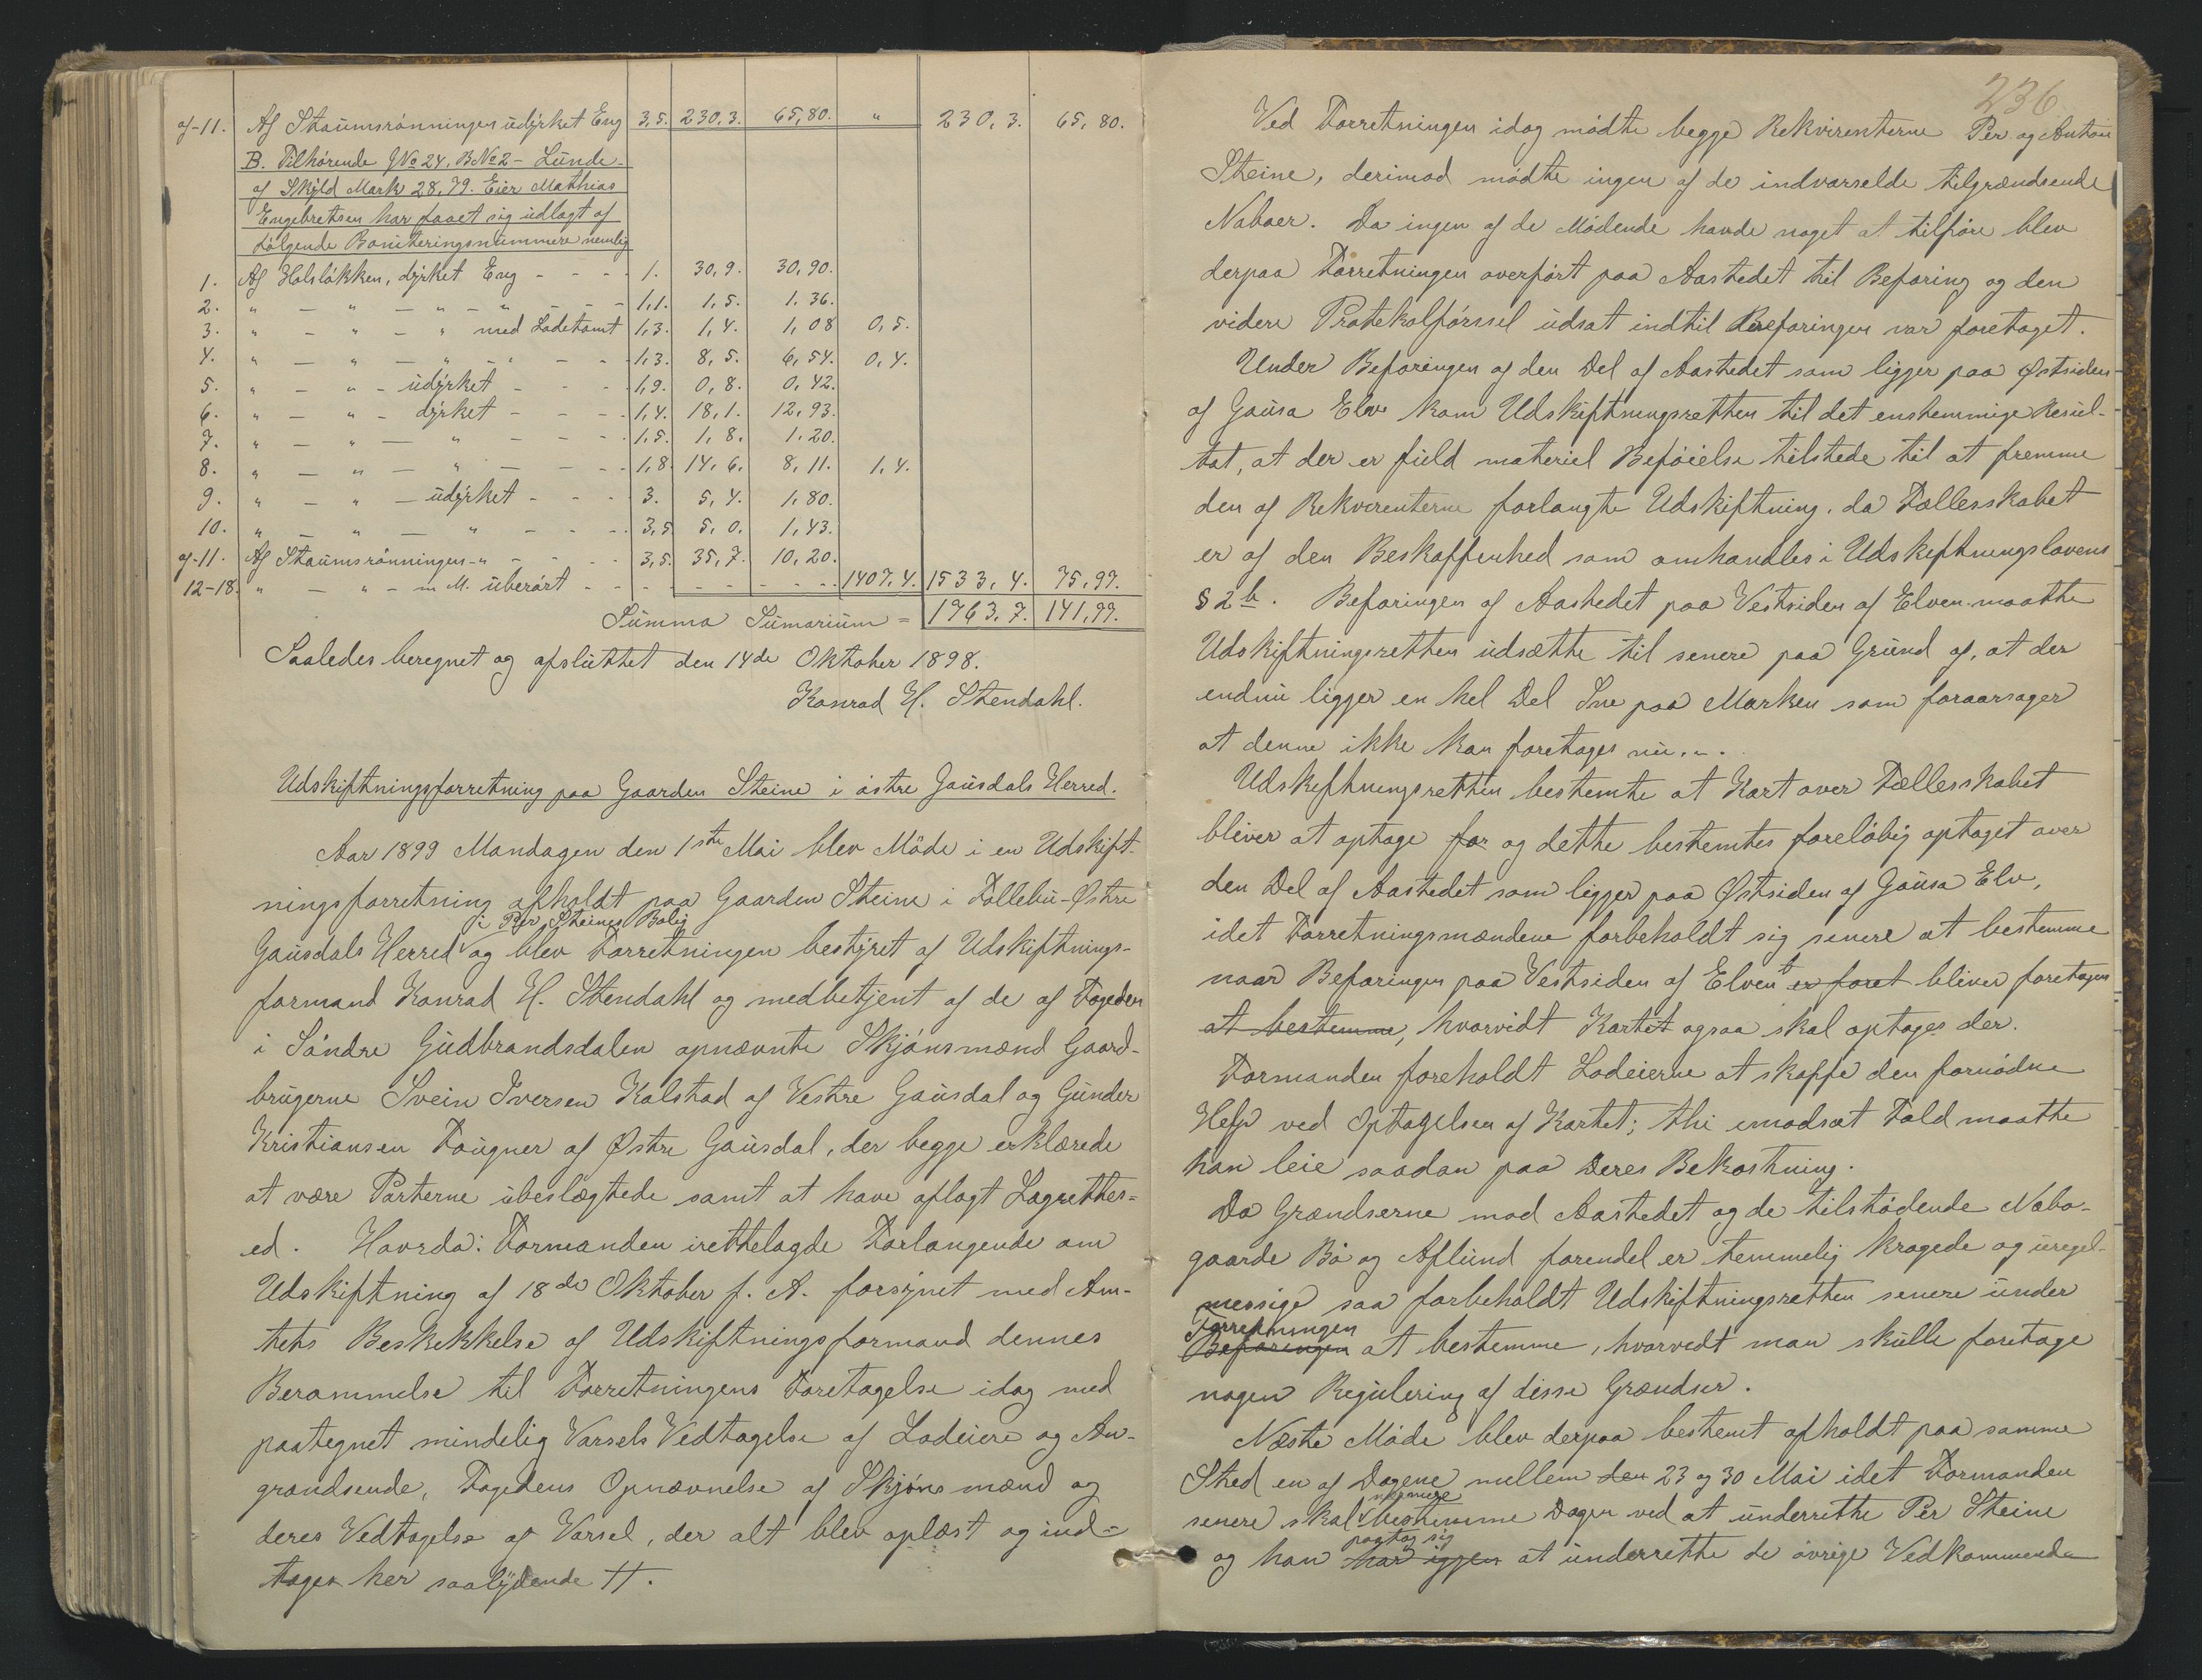 af-11. Af Staumsrönningen udyrket Eng 3,5. 230,3. 65,80. " 230,3. 65,80.
B. Tilhörende GNo 24, BNo 2 - Lunde-
af Skyld Mark 28,79. Eier Mathias
Engebretsen har faaet sig udlagt af
følgende Boniteringsnummere nemlig
1. Af Holslökken, dyrket Eng - - - - 1. 30,9. 30,90.
2. " — " — " — " - - - 1,1. 1,5. 1,36.
3. " — " — " med Ladetomt 1,3. 1,4. 1,08 0,5.
4. " — " — " - " - - - 1,3. 8,5. 6,54. 0,4.
5. " — " - udyrket - - - 1,9. 0,8. 0,42.
6. " — " - dyrket - - - 1,4. 18,1. 12,93.
7. " — " — " - - - 1,5. 1,8. 1.20.
8. " — " — " — - - - 1,8 14,6. 8,11. 1,4.
9. " — " — udyrket - - - 3. 5,4. 1,80.
10. " — " — " - - - 3,5 5,0. 1,43.
af-11. Af Staumsrönningen - " - - - 3,5. 35,7. 10,20.
12-18. " — " - m M. uberört - - - - - - - 1407,4. 1533,4. 75,97.
Summa Sumarium = 1763,7. 141,77.
Saaledes beregnet og afsluttet den 14de Oktober 1898.
Konrad H. Stendahl.
Udskiftningsforretning paa Gaarden Steine i östre Gausdals Herred.
Aar 1899 Mandagen den 1ste Mai blev Möde i en Udskift-
ningsforretning afholdt paa Gaarden Steine i Follebu-Østre
i Per Steines Bolig
Gausdals Herred og blev Forretningen bestyret af Udskiftnings-
formand Konrad H. Stendahl og medbetjent af de af Fogeden
i Söndre Gudbrandsdalen opnævnte Skjönsmænd Gaard-
brugerne Svein Iversen Kalstad af Vestre Gausdal og Gunder
Kristiansen Fougner af Østre Gausdal, der begge erklærede
at være Parterne ubeslægtede samt at have aflagt Lagrettes-
ed. Hvorda: Formanden irettelagde Forlangende om
Udskiftning af 18de Oktober f. A. forsynet med Am-
tets Beskikkelse af Udskiftningsformand dennes
Berammelse til Forretningens Foretagelse idag med
paategnet mindelig Varsels Vedtagelse af Lodeiere og An-
grændsende, Fogedens Opnævnelse af Skjönsmænd og
deres Vedtagelse af Varsel, der alt blev oplæst og ind-
tages her saalydende H.
236
Ved Forretningen idag mödte begge Rekvirenterne Per og Anton
Steine, derimod mödte ingen af de indvarselde tilgrændsende
Naboer. Da ingen af de Mödende havde noget at tilföre blev
derpaa Forretningen overfört paa Aastedet til Befaring og den
videre Protokolförssel udsat indtil Befaringen var foretaget.
Under Befaringen af den Del af Aastedet som ligger paa Østsiden
af Gausa Elv kom Udskiftningsretten til det enstemmige Resul-
tat, at der er fuld materiel Beföielse tilstede til at fremme
den af Rekvirenterne forlangte Udskiftning, da Fællesskabet
er af den Beskaffenhed som omhandles i Udskiftningslovens
§ 2 b. Befaringen af Aastedet paa Vestsiden af Elven maatte
Udskiftningsretten udsætte til senere paa Grund af, at der
endnu ligger en hel Del Sne paa Marken som foraarsager
at denne ikke kan foretages nu.
Udskiftningsretten bestemte at Kart over Fællesskabet
bliver at optage for og dette bestemtes foreløbig optaget over
den Del af Aastedet som ligger paa Østsiden af Gausa Elv,
idet Forretningsmændene forbeholdt sig senere at bestemme
naar Befaringen paa Vestsiden af Elven er foret bliver foretagen
at bestemme, hvorvidt Kartet ogsaa skal optages der.
Formanden foreholdt Lodeierne at skaffe den fornödne
Help ved Optagelsen af Kartet; thi imodsat Fald maatte
han leie saadan paa Deres Bekostning.
Da Grændserne mod Aastedet og de tilstödende Nabo-
gaarde Bö og Aflund forendel er temmelig kragede og uregel-
messige saa forbeholdt Udskiftningsretten senere under
Forretningen
Befaringen at bestemme, hvorvidt man skulle foretage
nogen Regulering af disse Grændser.
Næste Möde blev derpaa bestemt afholdt paa samme
Sted en af Dagene mellem den 23 og 30 Mai idet Formanden
nærmere
senere skal bestemme Dagen ved at underrette Per Steine
paatog sig
og han har igjen at underrette de övrige Vedkommende